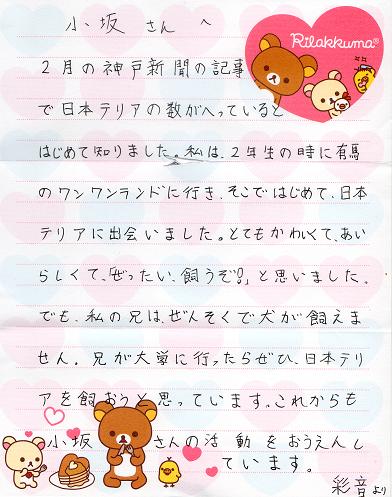 小坂さんへ
Rilakkuma®
2月の神戸新聞の記事
で日本テリアの数がへっていると
はじめて知りました。私は、2年生の時に有馬
のワンワンランドに行き、そこではじめて、日本
テリアに出会いました。とてもかわいくて、あい
らしくて、「ぜったい、飼うぞ!」と思いました。
でも、私の兄は、ぜんそくで犬が飼えま
せん。兄が大学に行ったらぜひ、日本テリ
アを飼おうと思っています。これからも
小坂さんの活動をおうえんし
ています。
彩音より